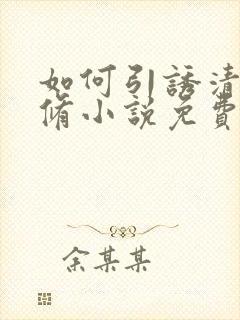 如何引誘清
脩小說免費
余某某